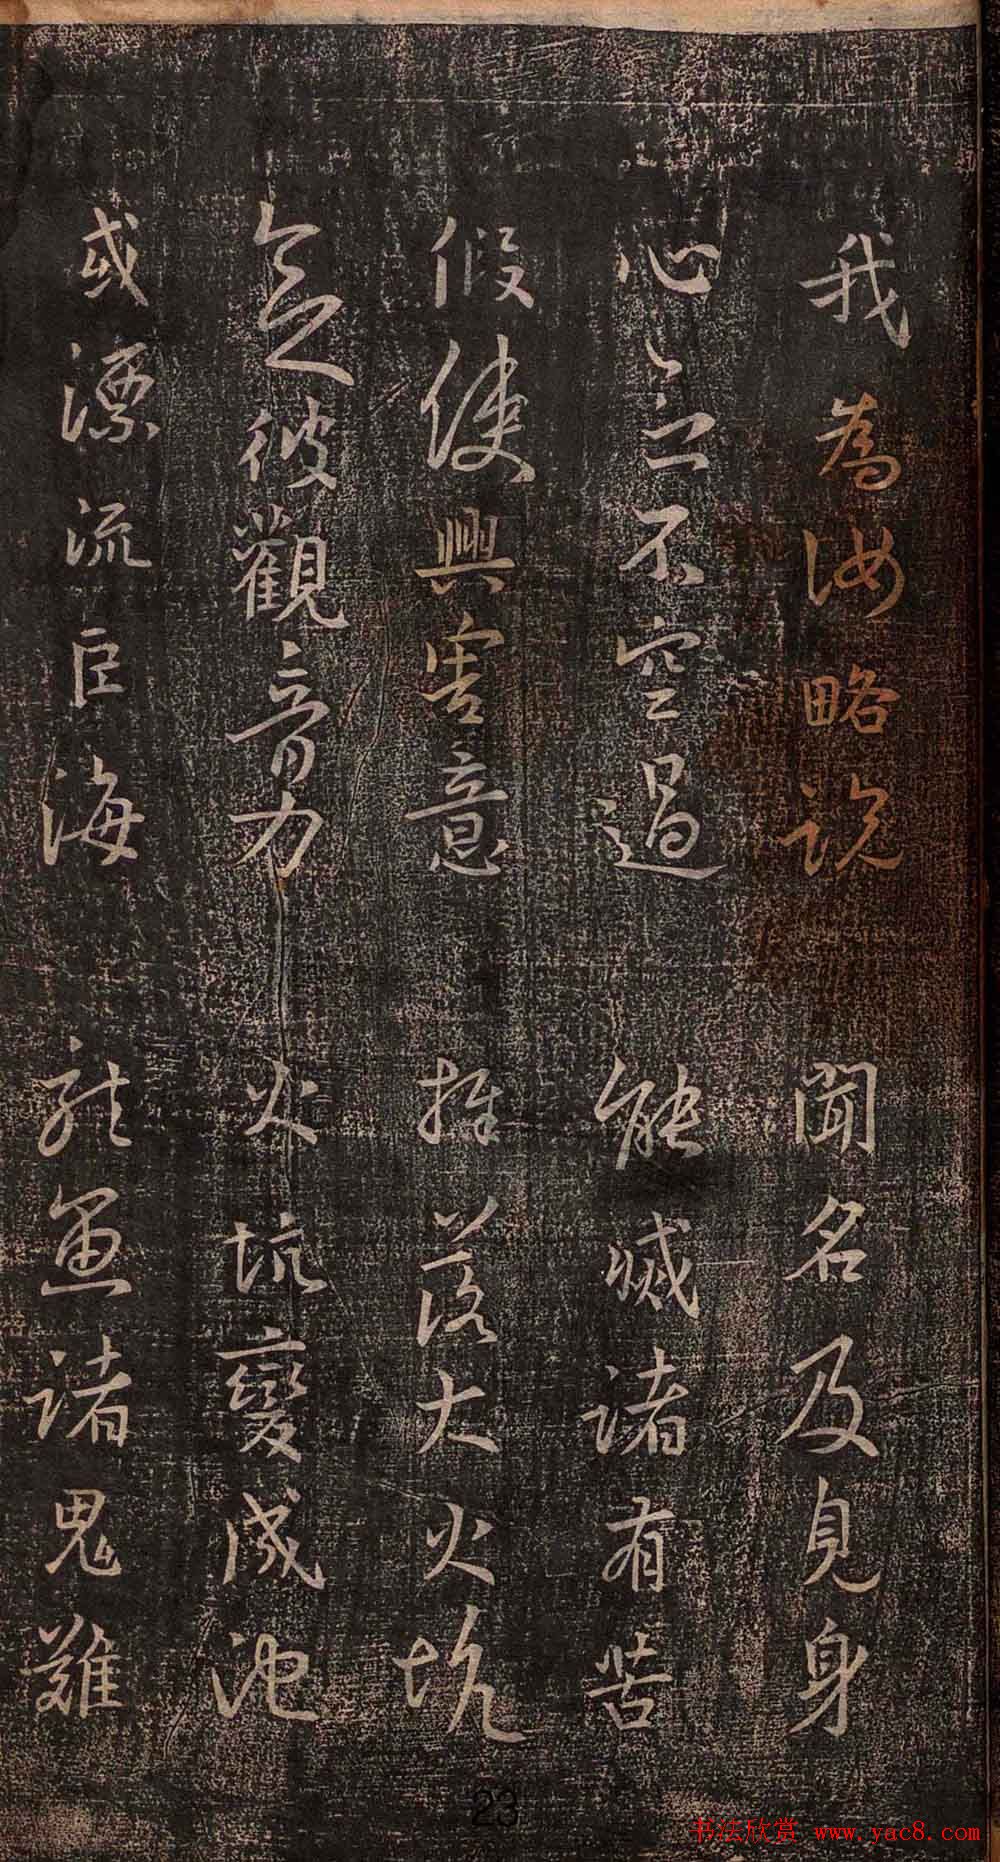 我為汝略說 聞名及見身
心念不空過 能滅諸有苦
假使興害意 推落大火坑
念彼觀音力 火坑變成池
或漂流巨海 龍魚諸鬼難
23
书法欣赏 www.yac8.com